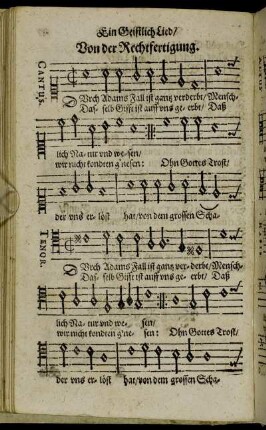 Ein Geistlich Lied/
Von der Rechtfertigung.
CANTUS.
DUrch Adams Fall ist gantz verderbt/Mensch-
Das- selb Gifft ist auff vns ge- erbt/ Daß
lich Na- tur vnd we-sen/
wir nicht kondten g'nesen: Ohn Gottes Trost/
der vns er- löst hat/von dem grossen Scha-
TENOR.
DUrch Adams Fall ist gantz ver-derbt/Mensch-
Das- selb Gifft ist auff vns ge- erbt/ Daß
lich Na- tur vnd we- sen/
wir nicht kondten g'ne- sen: Ohn Gottes Trost/
der vns er- löst hat/von dem grossen Scha-